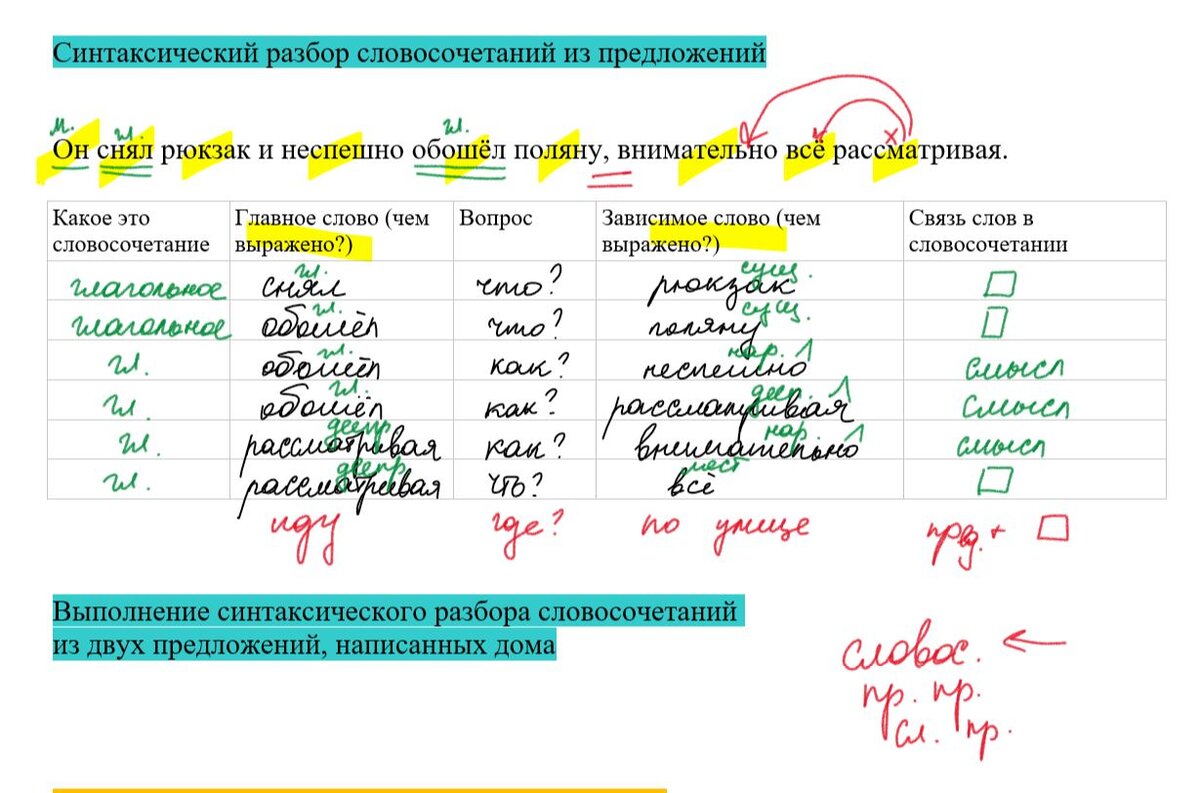 Синтаксический разбор словосочетаний из предложений
м. гл. гл.
Он снял рюкзак и неспешно обошёл поляну, внимательно всё рассматривая.
Какое это словосочетание Главное слово (чем выражено?) Вопрос Зависимое слово (чем выражено?) Связь слов в словосочетании
гл. сущ.
глагольное снял что? рюкзак
гл. сущ.
глагольное обошёл что? поляну
гл. нар.
гл. обошёл как? неспешно смысл
гл. деепр.
гл. обошёл как? рассматривая смысл
деепр. нар.
гл. рассматривая как? внимательно смысл
деепр. мест
гл. рассматривая что? всё
иду где? по улице пред. +
Выполнение синтаксического разбора словосочетаний
из двух предложений, написанных дома
словос. ←
пр. пр.
сл. пр.